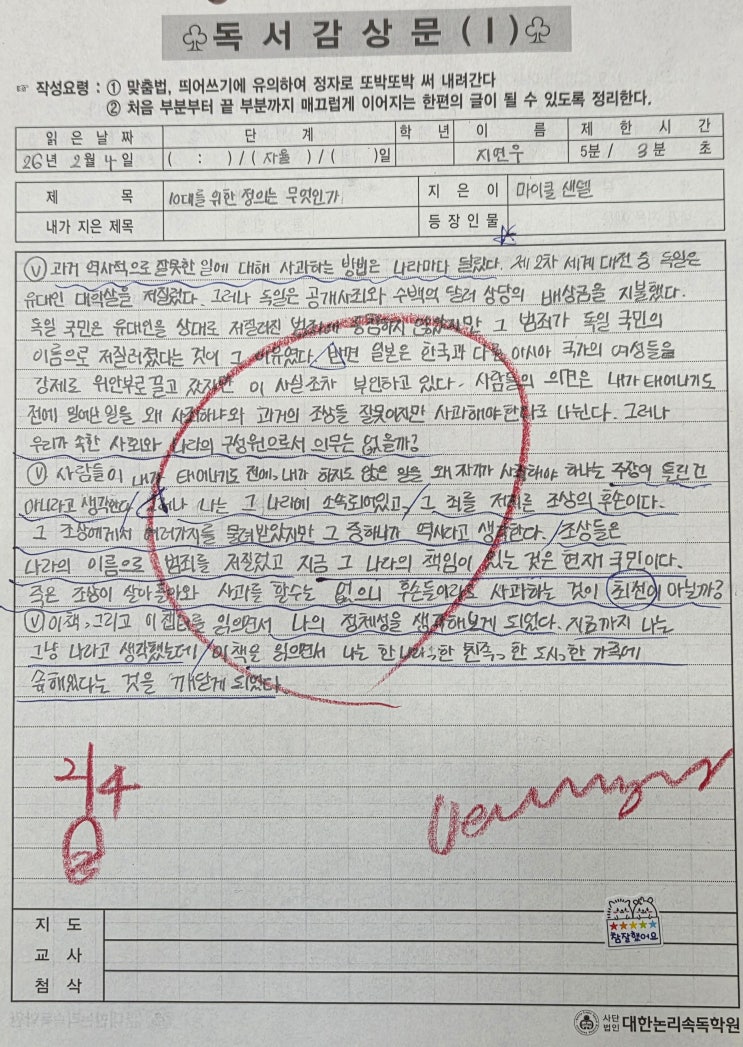 독서감상문(1)
☞ 작성요령 : ① 맞춤법, 띄어쓰기에 유의하여 정자로 또박또박 써 내려간다
② 처음 부분부터 끝 부분까지 매끄럽게 이어지는 한편의 글이 될 수 있도록 정리한다.
읽은날짜 단계 학년 이름 제한시간
26년 2월 4일 ( : ) / ( 자율 ) / ( )일 지연우 5분 / 3분 초
제목 10대를 위한 정의는 무엇인가 지은이 마이클 샌델
내가 지은 제목 등장인물
과거 역사적으로 잘못한 일에 대해 사과하는 방법은 나라마다 달랐다. 제 2차 세계 대전 중 독일은
유대인 대학살을 저질렀다. 그러나 독일은 공개사죄와 수백억 달러 상당의 배상금을 지불했다.
독일 국민은 유대인을 상대로 저질러진 범죄에 동참하지 않았지만 그 범죄가 독일 국민의
이름으로 저질러졌다는 것이 그 이유였다. 반면 일본은 한국과 다른 아시아 국가의 여성들을
강제로 위안부로 끌고 갔지만 이 사실조차 부인하고 있다. 사람들의 의견은 내가 태어나기도
전에 일어난 일을 왜 사죄하냐와 과거의 조상들 잘못이지만 사과해야 한다로 나뉜다. 그러나
우리가 속한 사회와 나라의 구성원으로서 의무는 없을까?
사람들이 내가 태어나기도 전에, 내가 하지도 않은 일을 왜 자기가 사과해야 하냐는 주장이 틀린 건
아니라고 생각한다. 그러나 나는 그 나라에 소속되어있고, 그 죄를 저지른 조상의 후손이다.
그 조상에게서 여러가지를 물려받았지만 그 중하나가 역사라고 생각한다. 조상들은
나라의 이름으로 범죄를 저질렀고 지금 그 나라의 책임이 있는 것은 현재 국민이다.
죽은 조상이 살아 돌아와 사과를 할수는 없으니 후손들이라도 사과하는 것이 최선이 아닐까?
이책, 그리고 이 챕터를 읽으면서 나의 정체성을 생각해보게 되었다. 지금까지 나는
그냥 나라고 생각했는데 이 책을 읽으면서 나는 한 나라, 한 친족, 한 도시, 한 가족에
속해있다는 것을 깨닫게 되었다
2/4
지도
교사
첨삭
참잘했어요
사단법인 대한논리속독학원